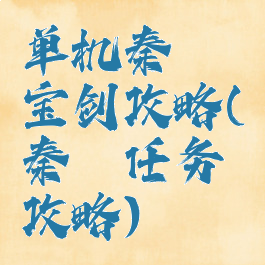 单机秦
宝剑攻略(
秦 任务
攻略)